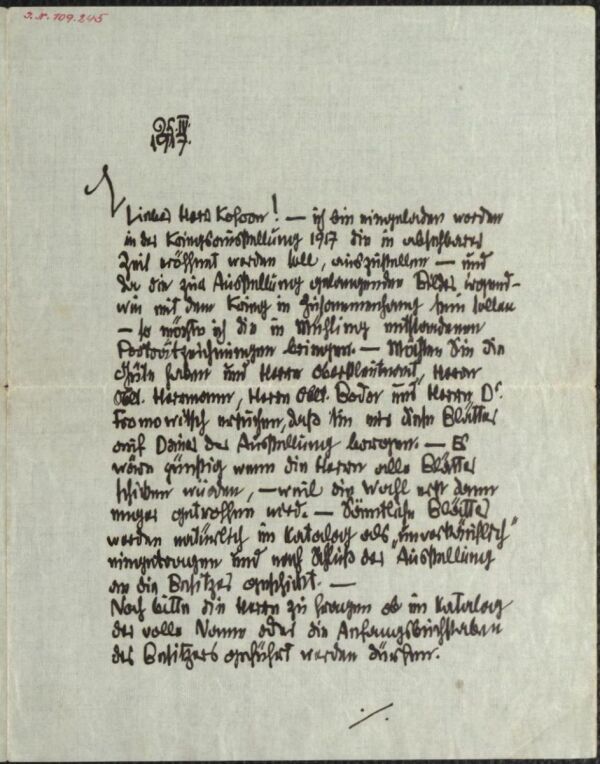 J.N. 109.245
25.IV.
1917.
Lieber Herr Kosoon! — ich bin eingeladen worden
in der Kriegsausstellung 1917 die in absehbarer
Zeit eröffnet werden soll, auszustellen — und
da die zur Ausstellung gelangenden Bilder irgend-
wie mit dem Krieg in Zusammenhang sein sollen
— so möchte ich die in Mühling entstandenen
Porträtzeichnungen bringen. — Möchten Sie die
Güte haben und Herrn Oberstleutnant, Herrn
Oblt. Herrmann, Herrn Oblt. Bodor und Herrn Dr.
ersuchen, daß sie mir diese Blätter
auf Dauer der Ausstellung borgen. — Es
wäre günstig wenn die Herren alle Blätter
schicken würden, — weil die Wahl erst dann
enger getroffen wird. — Sämtliche Blätter
werden natürlich im Katalog als „unverkäuflich“
eingetragen und nach Schluß der Ausstellung
an die Besitzer geschickt. —
Noch bitte die Herrn zu fragen ob im Katalog
der volle Name oder die Anfangsbuchstaben
des Besitzers geführt werden dürfen.
./.